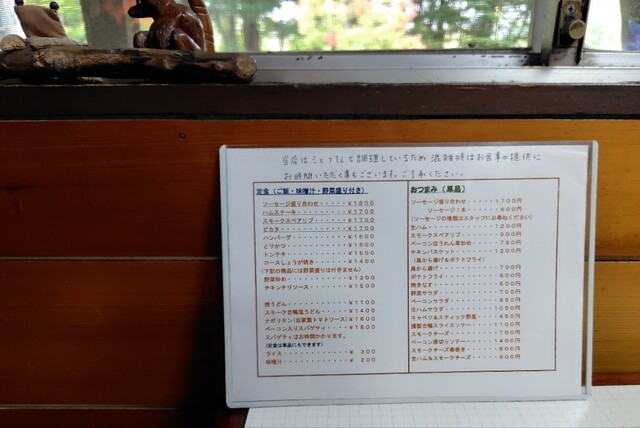 当店はシェフ1人で調理しているため 混雑時はお食事の提供に
お時間いただく事もございます。ご了承ください。
定食（ご飯・味噌汁・野菜盛り付き）
ソーセージ盛り合わせ・・・・・￥1800
ハムステーキ・・・・・・・・・￥1700
スモークスペアリブ・・・・・・￥1700
ピカタ・・・・・・・・・・・・￥1700
ハンバーグ・・・・・・・・・・￥1600
とりかつ・・・・・・・・・・・￥1600
トンテキ・・・・・・・・・・・￥1600
ロースしょうが焼き・・・・・・￥1400
（下記の商品には野菜盛りは付きません）
野菜炒め・・・・・・・・・・・￥1300
チキンチリソース・・・・・・・￥1500
焼うどん・・・・・・・・・・・￥1100
スモーク合鴨塩うどん・・・・・￥1400
ナポリタン（自家製トマトソース）￥1600
ベーコン入りスパゲティ・・・・￥1800
スパゲティはお時間かかります。
（定食は単品にもできます）
ライス・・・・・・・・・・・・￥ 300
味噌汁・・・・・・・・・・・・￥ 200
おつまみ（単品）
ソーセージ盛り合わせ・・・・・1700円
ソーセージ1本・・・・・600円
（ソーセージの種類はスタッフにお尋ねください）
生ハム・・・・・・・・・・・・1200円
スモークスペアリブ・・・・・・900円
ベーコンほうれん草炒め・・・・750円
チキンバスケット・・・・・・・1200円
（鳥から揚げ＆ポテトフライ）
鳥から揚げ・・・・・・・・・・700円
ポテトフライ・・・・・・・・・600円
焼きなす・・・・・・・・・・・500円
野菜サラダ・・・・・・・・・・700円
ベーコンサラダ・・・・・・・・850円
生ハムサラダ・・・・・・・・・1000円
キャベツ＆スティック野菜・・・450円
燻製合鴨スライスソテー・・・・1100円
スモークチーズ・・・・・・・・700円
ベーコン厚切りソテー・・・・・1400円
スモークチーズ春巻き・・・・・800円
生ハム＆スモークチーズ・・・・900円